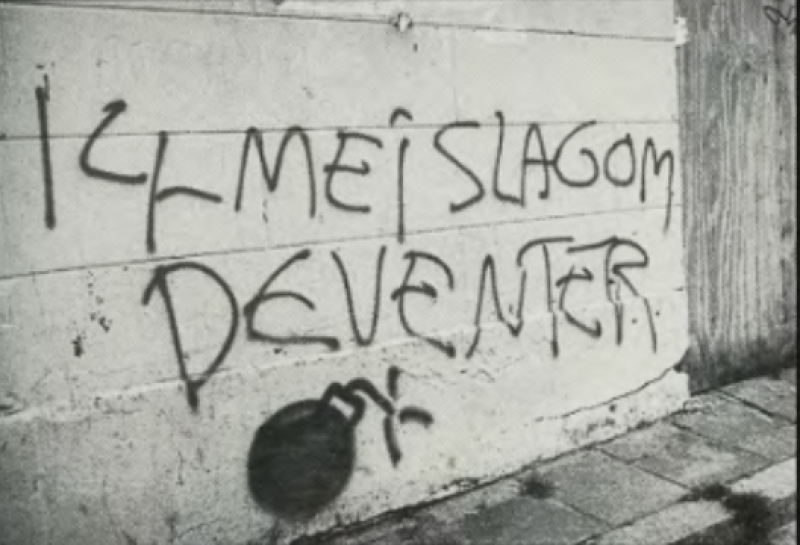 14 MEI SLAG OM
DEVENTER